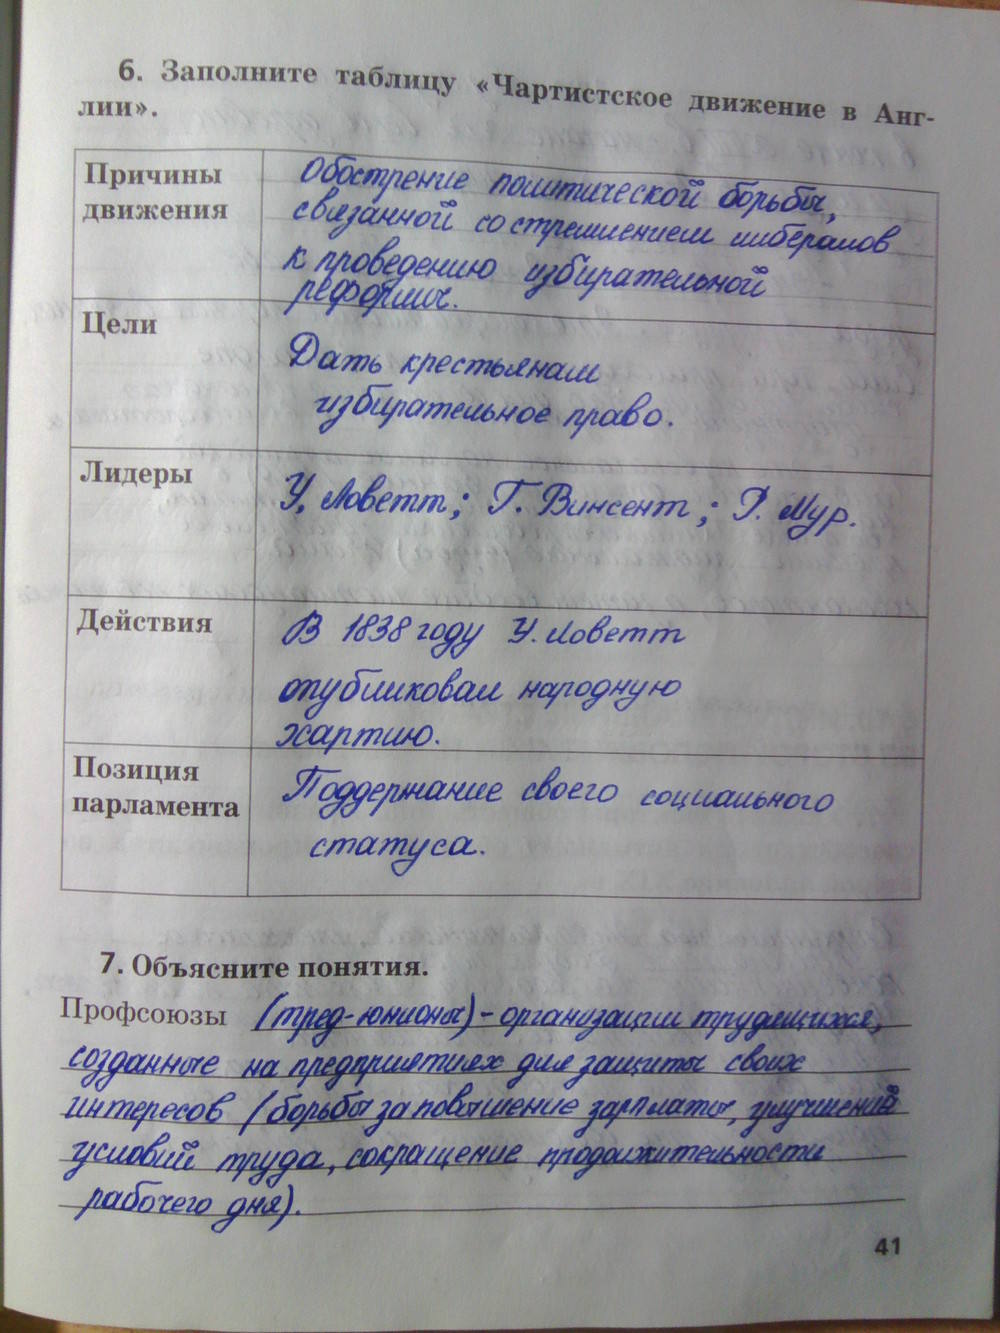 6. Заполните таблицу «Чартистское движение в Анг-
лии».
Причины
движения
Обострение политической борьбы,
связанной со стремлением либералов
к проведению избирательной
реформы.
Цели
Дать крестьянам
избирательное право.
Лидеры
У. Ловетт; Г. Винсент; Р. Мур.
Действия
В 1838 году У. Ловетт
опубликовал народную
хартию.
Позиция
парламента
Поддержание своего социального
статуса.
7. Объясните понятия.
Профсоюзы (тред-юнионы) - организации трудящихся,
созданные на предприятиях для защиты своих
интересов (борьбы за повышение зарплаты, улучшений
условий труда, сокращение продолжительности
рабочего дня).
41